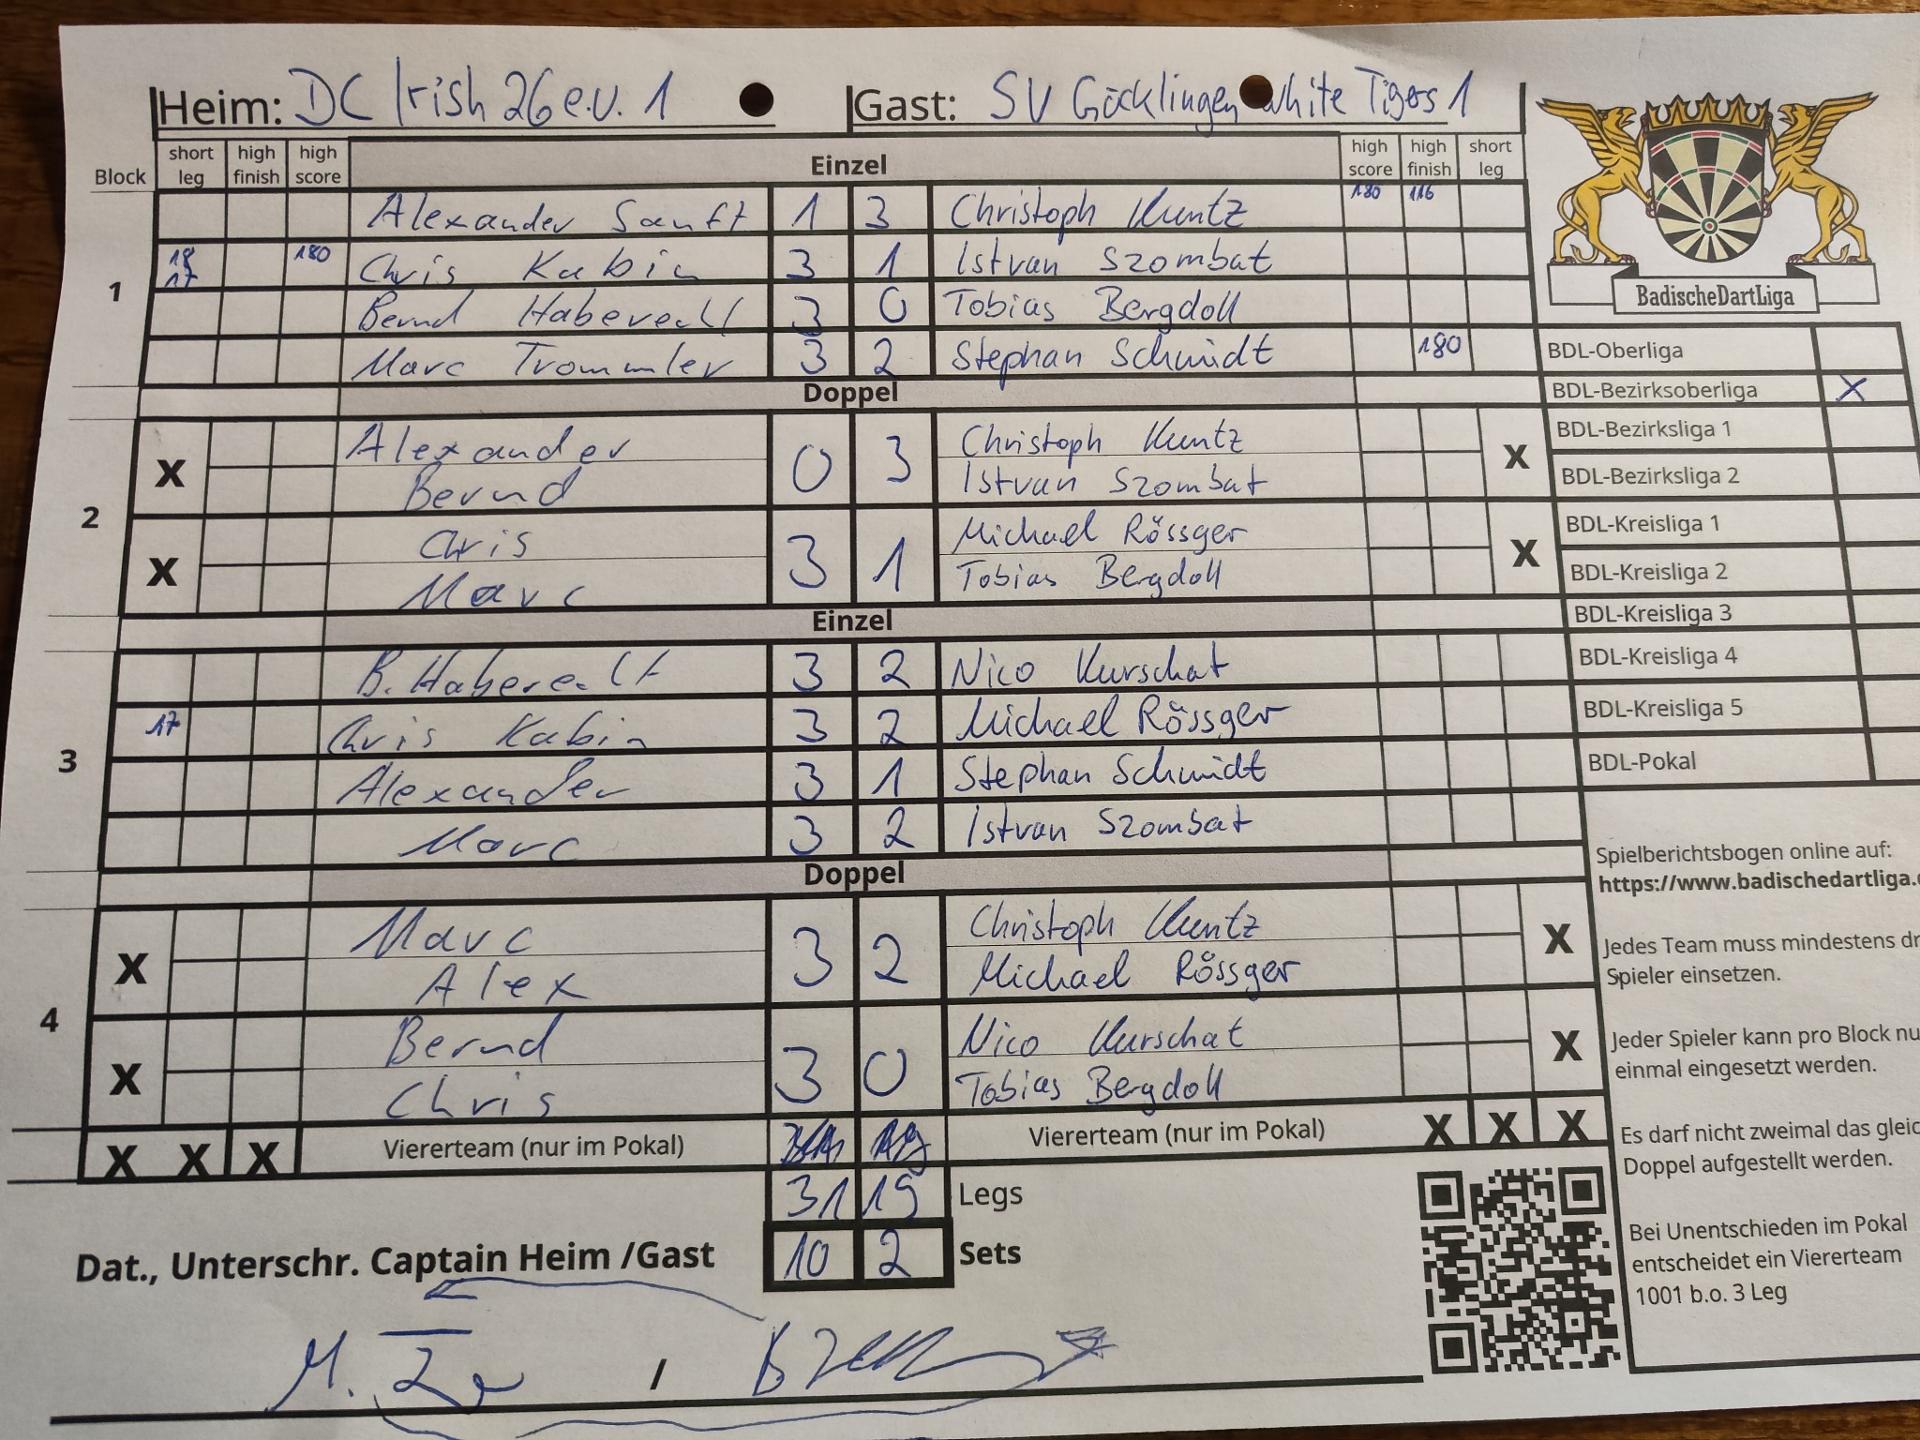 Heim: DC Irish 26 e.V. 1 Gast: SV Göcklingen White Tigers 1
Block short leg high finish high score Einzel high score high finish short leg
1
Alexander Sanft 1 3 Christoph Kuntz 180 116
18 17 180 Chris Kabin 3 1 Istvan Szombat
Bernd Haberecht 3 0 Tobias Bergdoll
Marc Trommler 3 2 Stephan Schmidt 180
Doppel
2
X Alexander 0 3 Christoph Kuntz X
Bernd Istvan Szombat
X Chris 3 1 Michael Rössger X
Marc Tobias Bergdoll
Einzel
3
B. Haberecht 3 2 Nico Kurschat
17 Chris Kabin 3 2 Michael Rössger
Alexander 3 1 Stephan Schmidt
Marc 3 2 Istvan Szombat
Doppel
4
X Marc 3 2 Christoph Kuntz X
Alex Michael Rössger
X Bernd 3 0 Nico Kurschat X
Chris Tobias Bergdoll
X X X Viererteam (nur im Pokal) Viererteam (nur im Pokal) X X X
31 19 Legs
Dat., Unterschr. Captain Heim /Gast 10 2 Sets
/
BadischeDartLiga
BDL-Oberliga
BDL-Bezirksoberliga X
BDL-Bezirksliga 1
BDL-Bezirksliga 2
BDL-Kreisliga 1
BDL-Kreisliga 2
BDL-Kreisliga 3
BDL-Kreisliga 4
BDL-Kreisliga 5
BDL-Pokal
Spielberichtsbogen online auf:
https://www.badischedartliga.
Jedes Team muss mindestens dr
Spieler einsetzen.
Jeder Spieler kann pro Block nu
einmal eingesetzt werden.
Es darf nicht zweimal das gleic
Doppel aufgestellt werden.
Bei Unentschieden im Pokal
entscheidet ein Viererteam
1001 b.o. 3 Leg